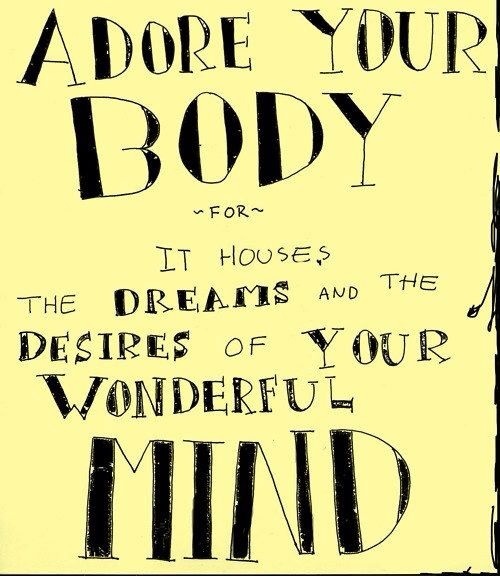 ADORE YOUR
BODY
~FOR~
IT HOUSES
THE DREAMS AND THE
DESIRES OF YOUR
WONDERFUL
MIND